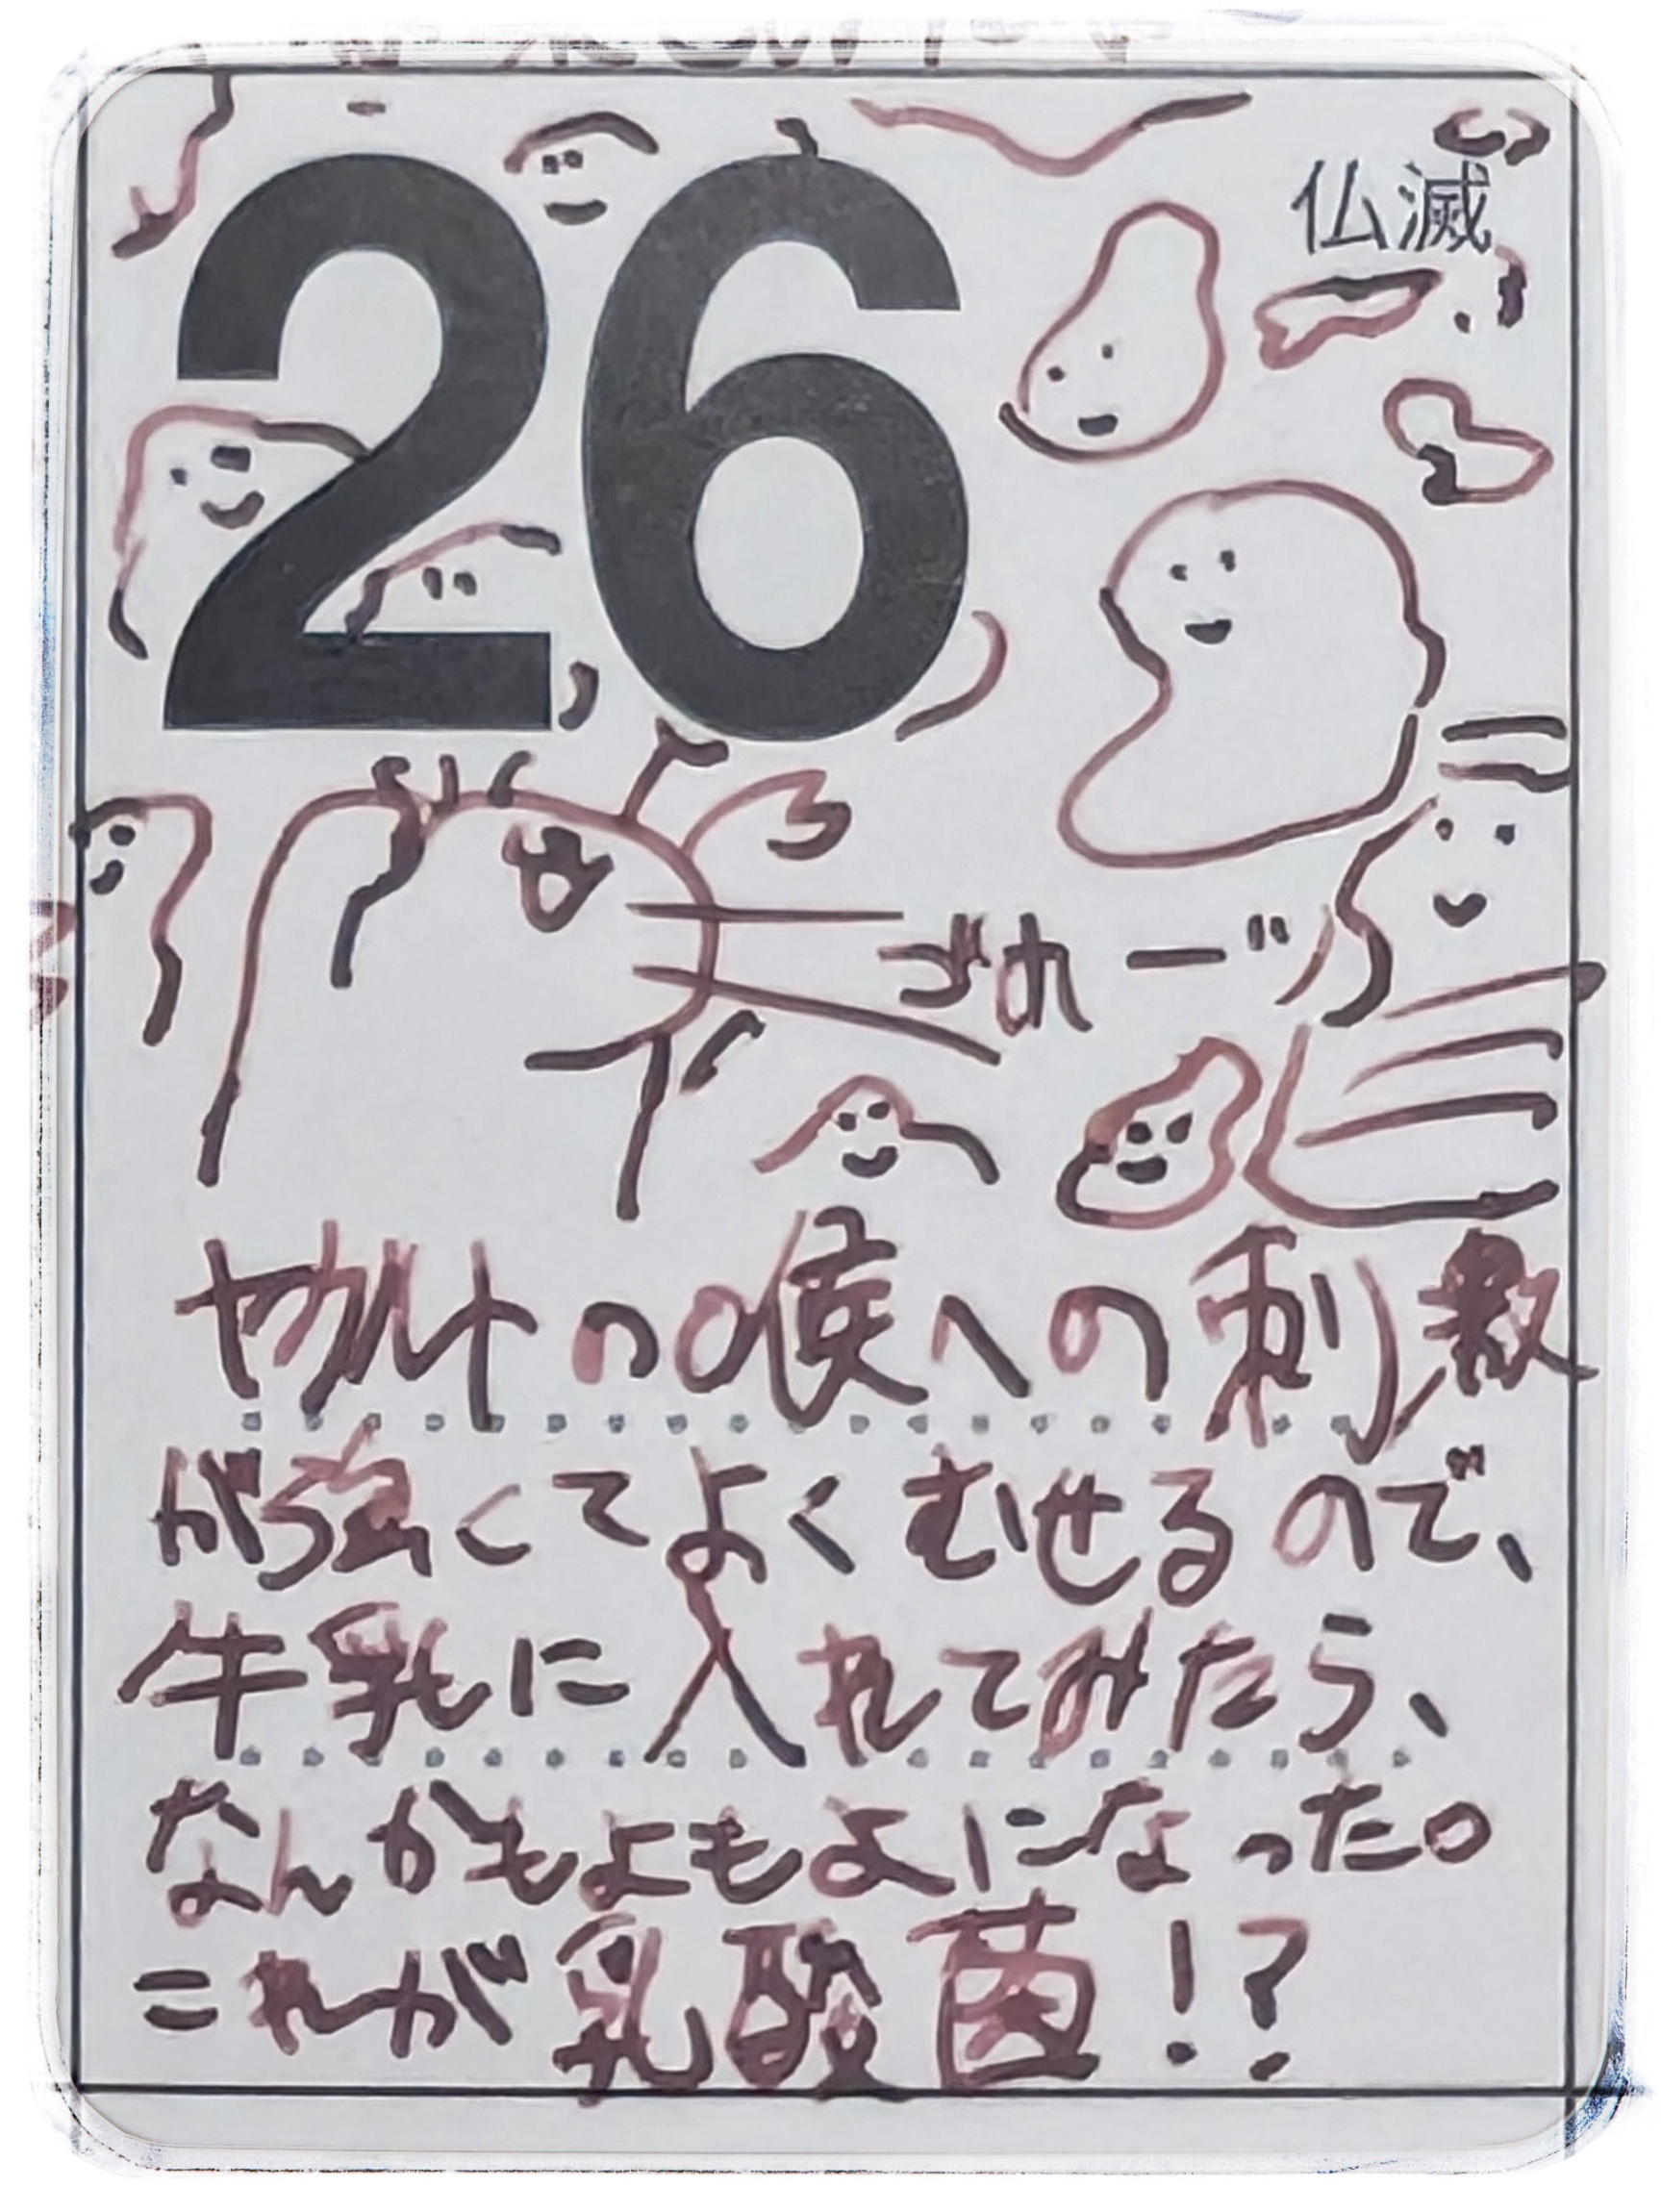 26
仏滅
ヤクルトの喉への刺激
が強くてよくむせるので、
牛乳に入れてみたら、
なんかもよもよになった。
これが乳酸菌!?